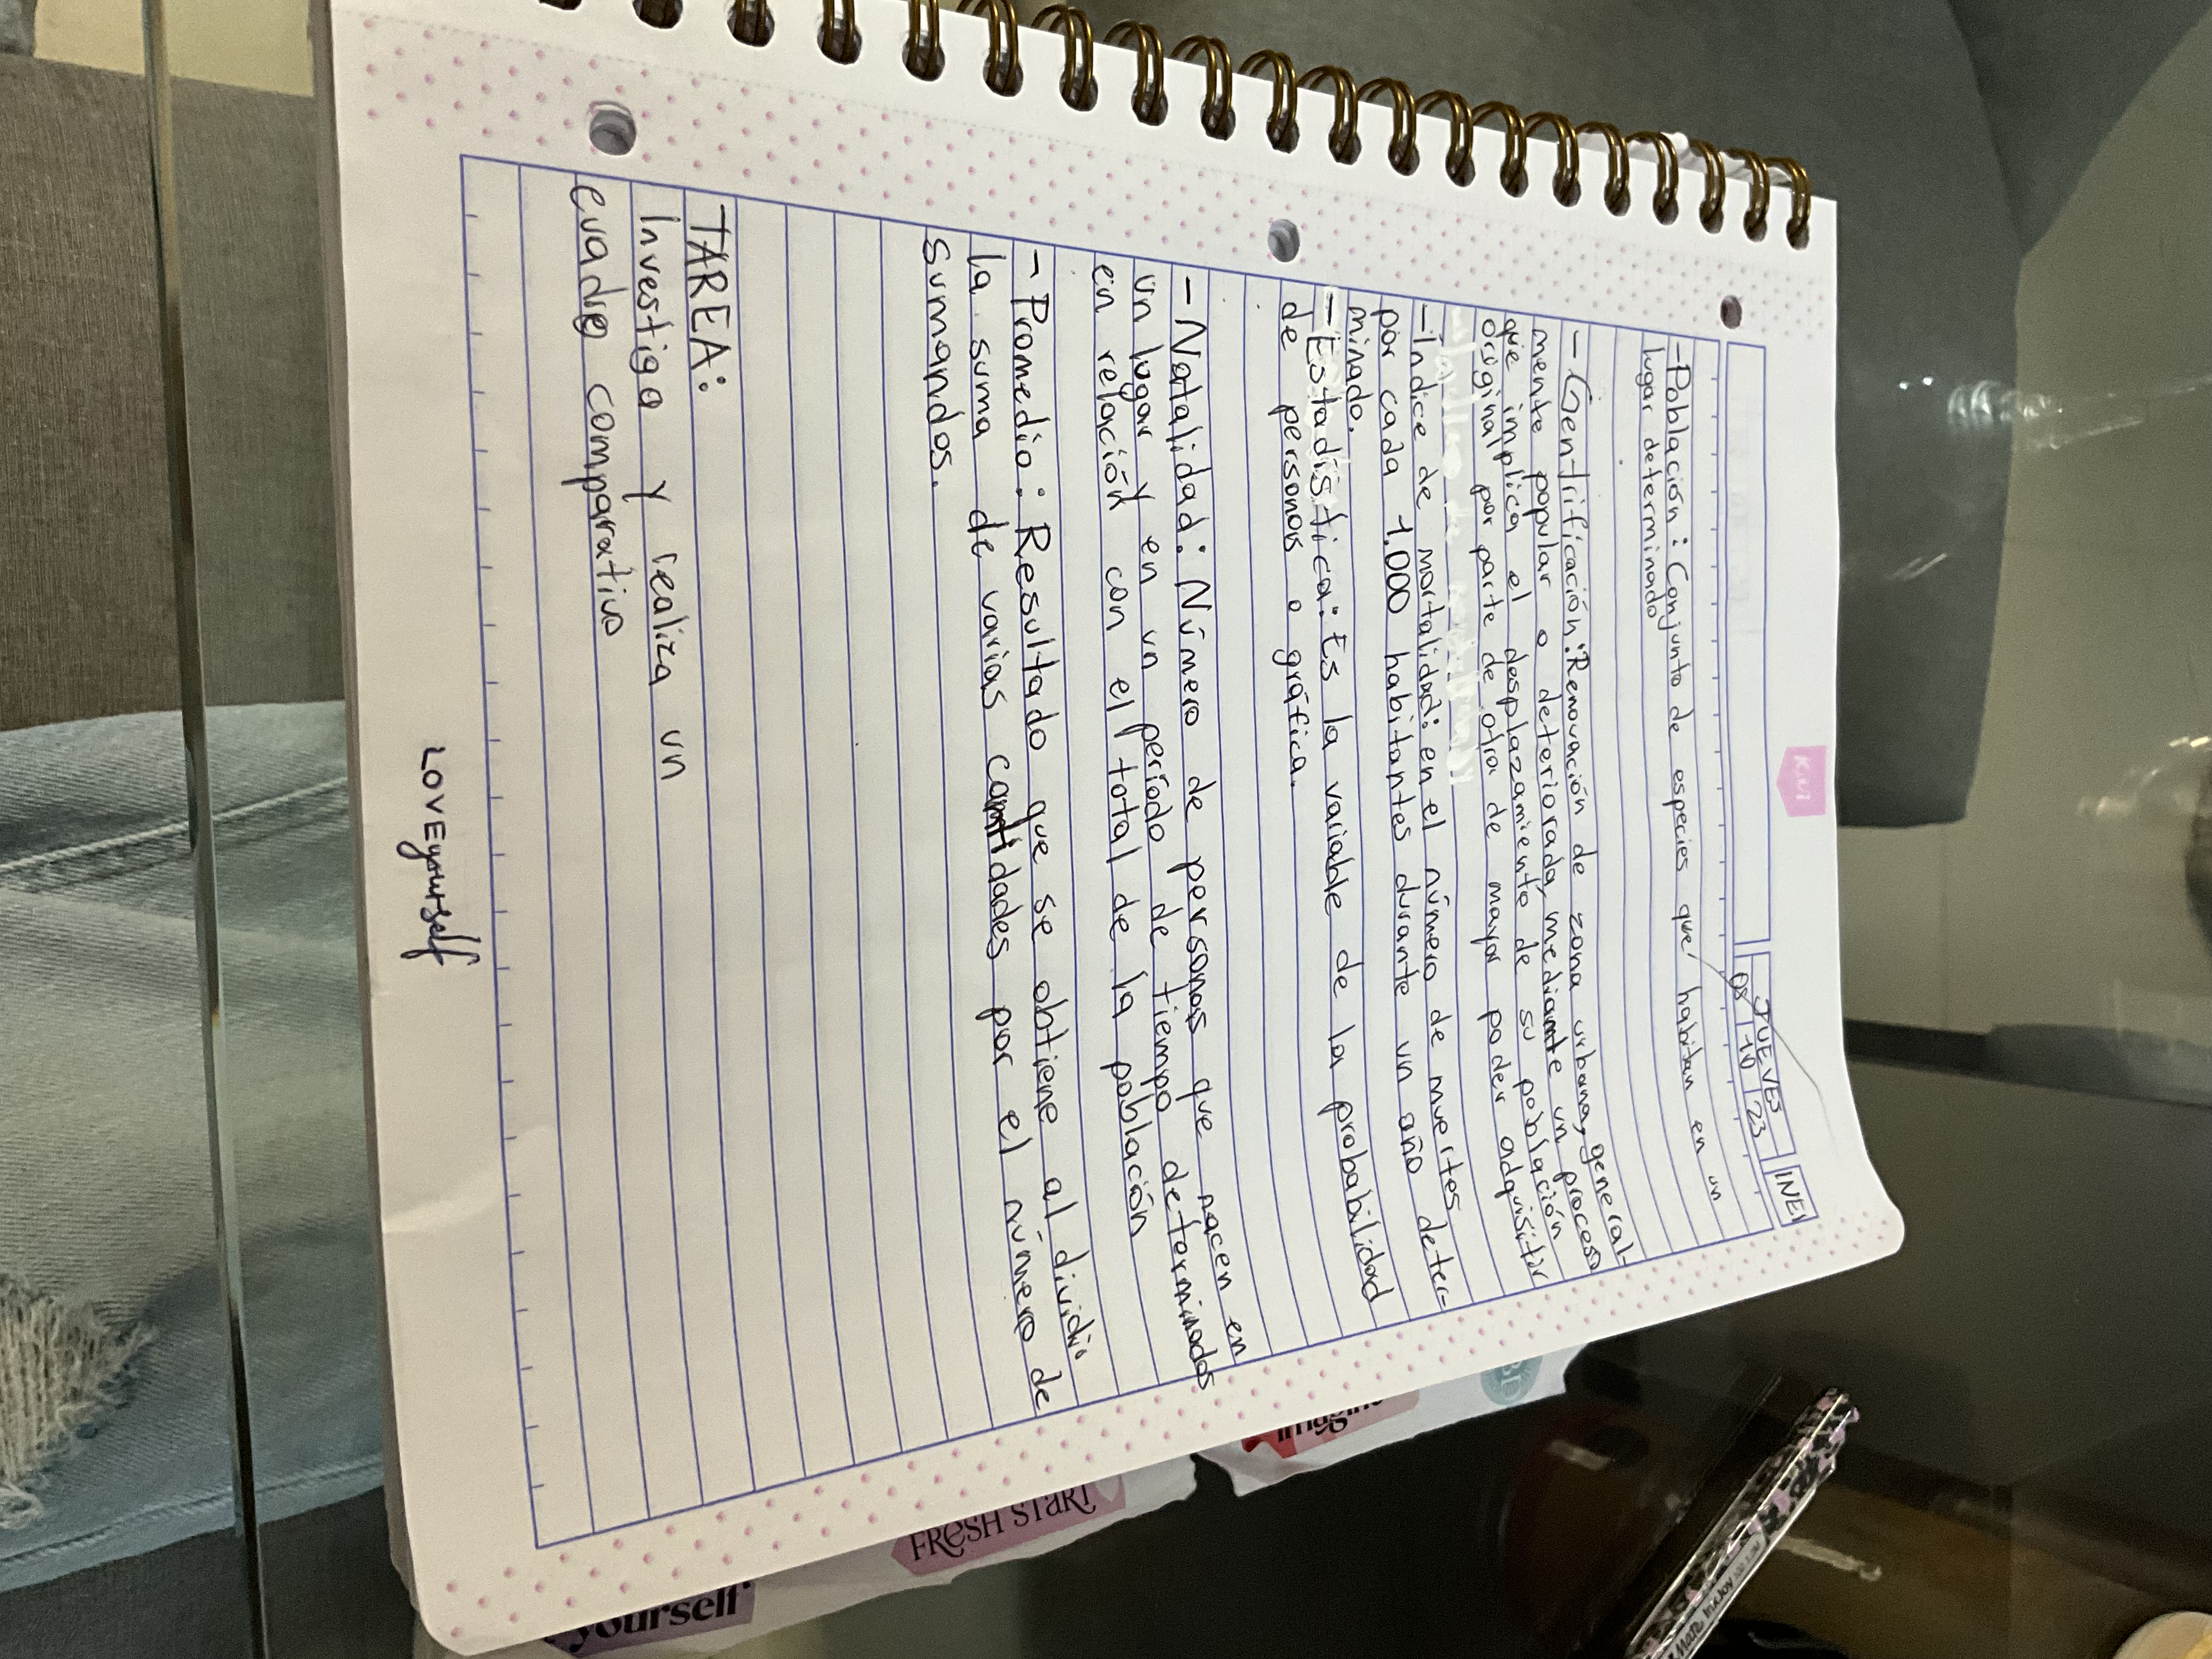 JUEVES
INEI
05 10 23
-Población: Conjunto de especies que habitan en un
lugar determinado
- Gentrificación: Renovación de zona urbana, general-
mente popular o deteriorada, mediante un proceso
que implica el desplazamiento de su población
original por parte de otra de mayor poder adquisitir
-Índice de mortalidad: en el número de muertes
por cada 1.000 habitantes durante un año deter-
minado.
-Estadística: Es la variable de la probabilidad
de personas o gráfica.
-Natalidad: Número de personas que nacen en
un lugar y en un período de tiempo determinados
en relación con el total de la población
- Promedio: Resultado que se obtiene al dividir
la suma de varias cantidades por el número de
sumandos.
TAREA:
Investiga y realiza un
cuadro comparativo
LOVE yourself
imagine
FRESH START
yourself